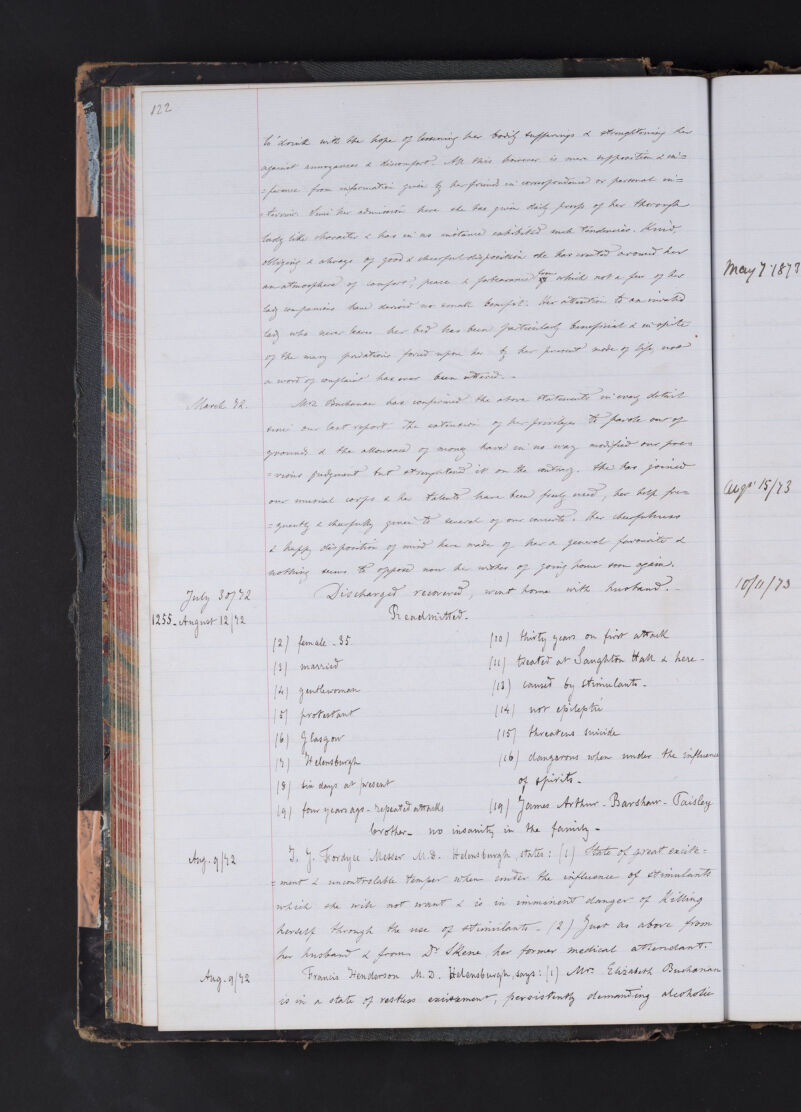 122
to drink with the hope of lessening her bodily sufferings & strengthening her
against annoyances & discomfort. All this however is mere supposition & in=
=ference from information given by her friends in correspondence or personal in=
=terview. Since her admission here she has given daily proofs of her thorough
lady like character & has in no instance exhibited such tendencies. Kind,
obliging & always of good & cheerful disposition she has created around her
an atmosphere of comfort, peace & forbearance from which not a few of her
lady companions have derived no small benefit. Her attention to an invalid
lady who never leaves her bed has been particularly beneficial & in spite
of the many privations forced upon her by her present mode of life, not
a word of complaint has ever been uttered. -
March 72. Mrs Buchanan has confirmed the above statements in every detail
since our last report. The extension of her privileges to parole out of
grounds & the allowance of money have in no way modified our pre=
=vious judgment but strengthened it on the contrary. She has joined
our musical corps & her talents have been freely used, her help fre=
=quently & cheerfully given to several of our concerts. Her cheerfulness
& happy disposition of mind have made of her a general favourite &
nothing seems to oppose now her wishes of going home soon again.
July 30/72 Discharged recovered, went home with husband. -
1255. August 12/72 Readmitted.
(2) female - 35
(3) married
(4) gentlewoman
(5) protestant
(6) Glasgow
(7) Helensburgh
(8) six days at present
(9) four years ago - repeated attacks
(10) thirty years on first attack
(11) treated at Saughton Hall & here -
(13) caused by stimulants -
(14) not epileptic
(15) threatens suicide
(16) dangerous when under the influence
of spirits -
(19) James Arthur - Barshaw - Paisley
brother - no insanity in the family -
Aug. 9/72 T. J. Fordyce Messer M.D. Helensburgh, states: (1) State of great excite=
=ment & uncontrolable temper when under the influence of stimulants
which she will not want & is in imminent danger of killing
herself through the use of stimulants - (2) Just as above from
her husband & from Dr Skene her former medical attendant.
Aug. 9/72 Francis Henderson M.D. Helensburgh, says: (1) Mrs Elizabeth Buchanan
is in a state of restless excitement, persistently demanding alcoholic
May 7 1873
Augt 15/73
10/11/73